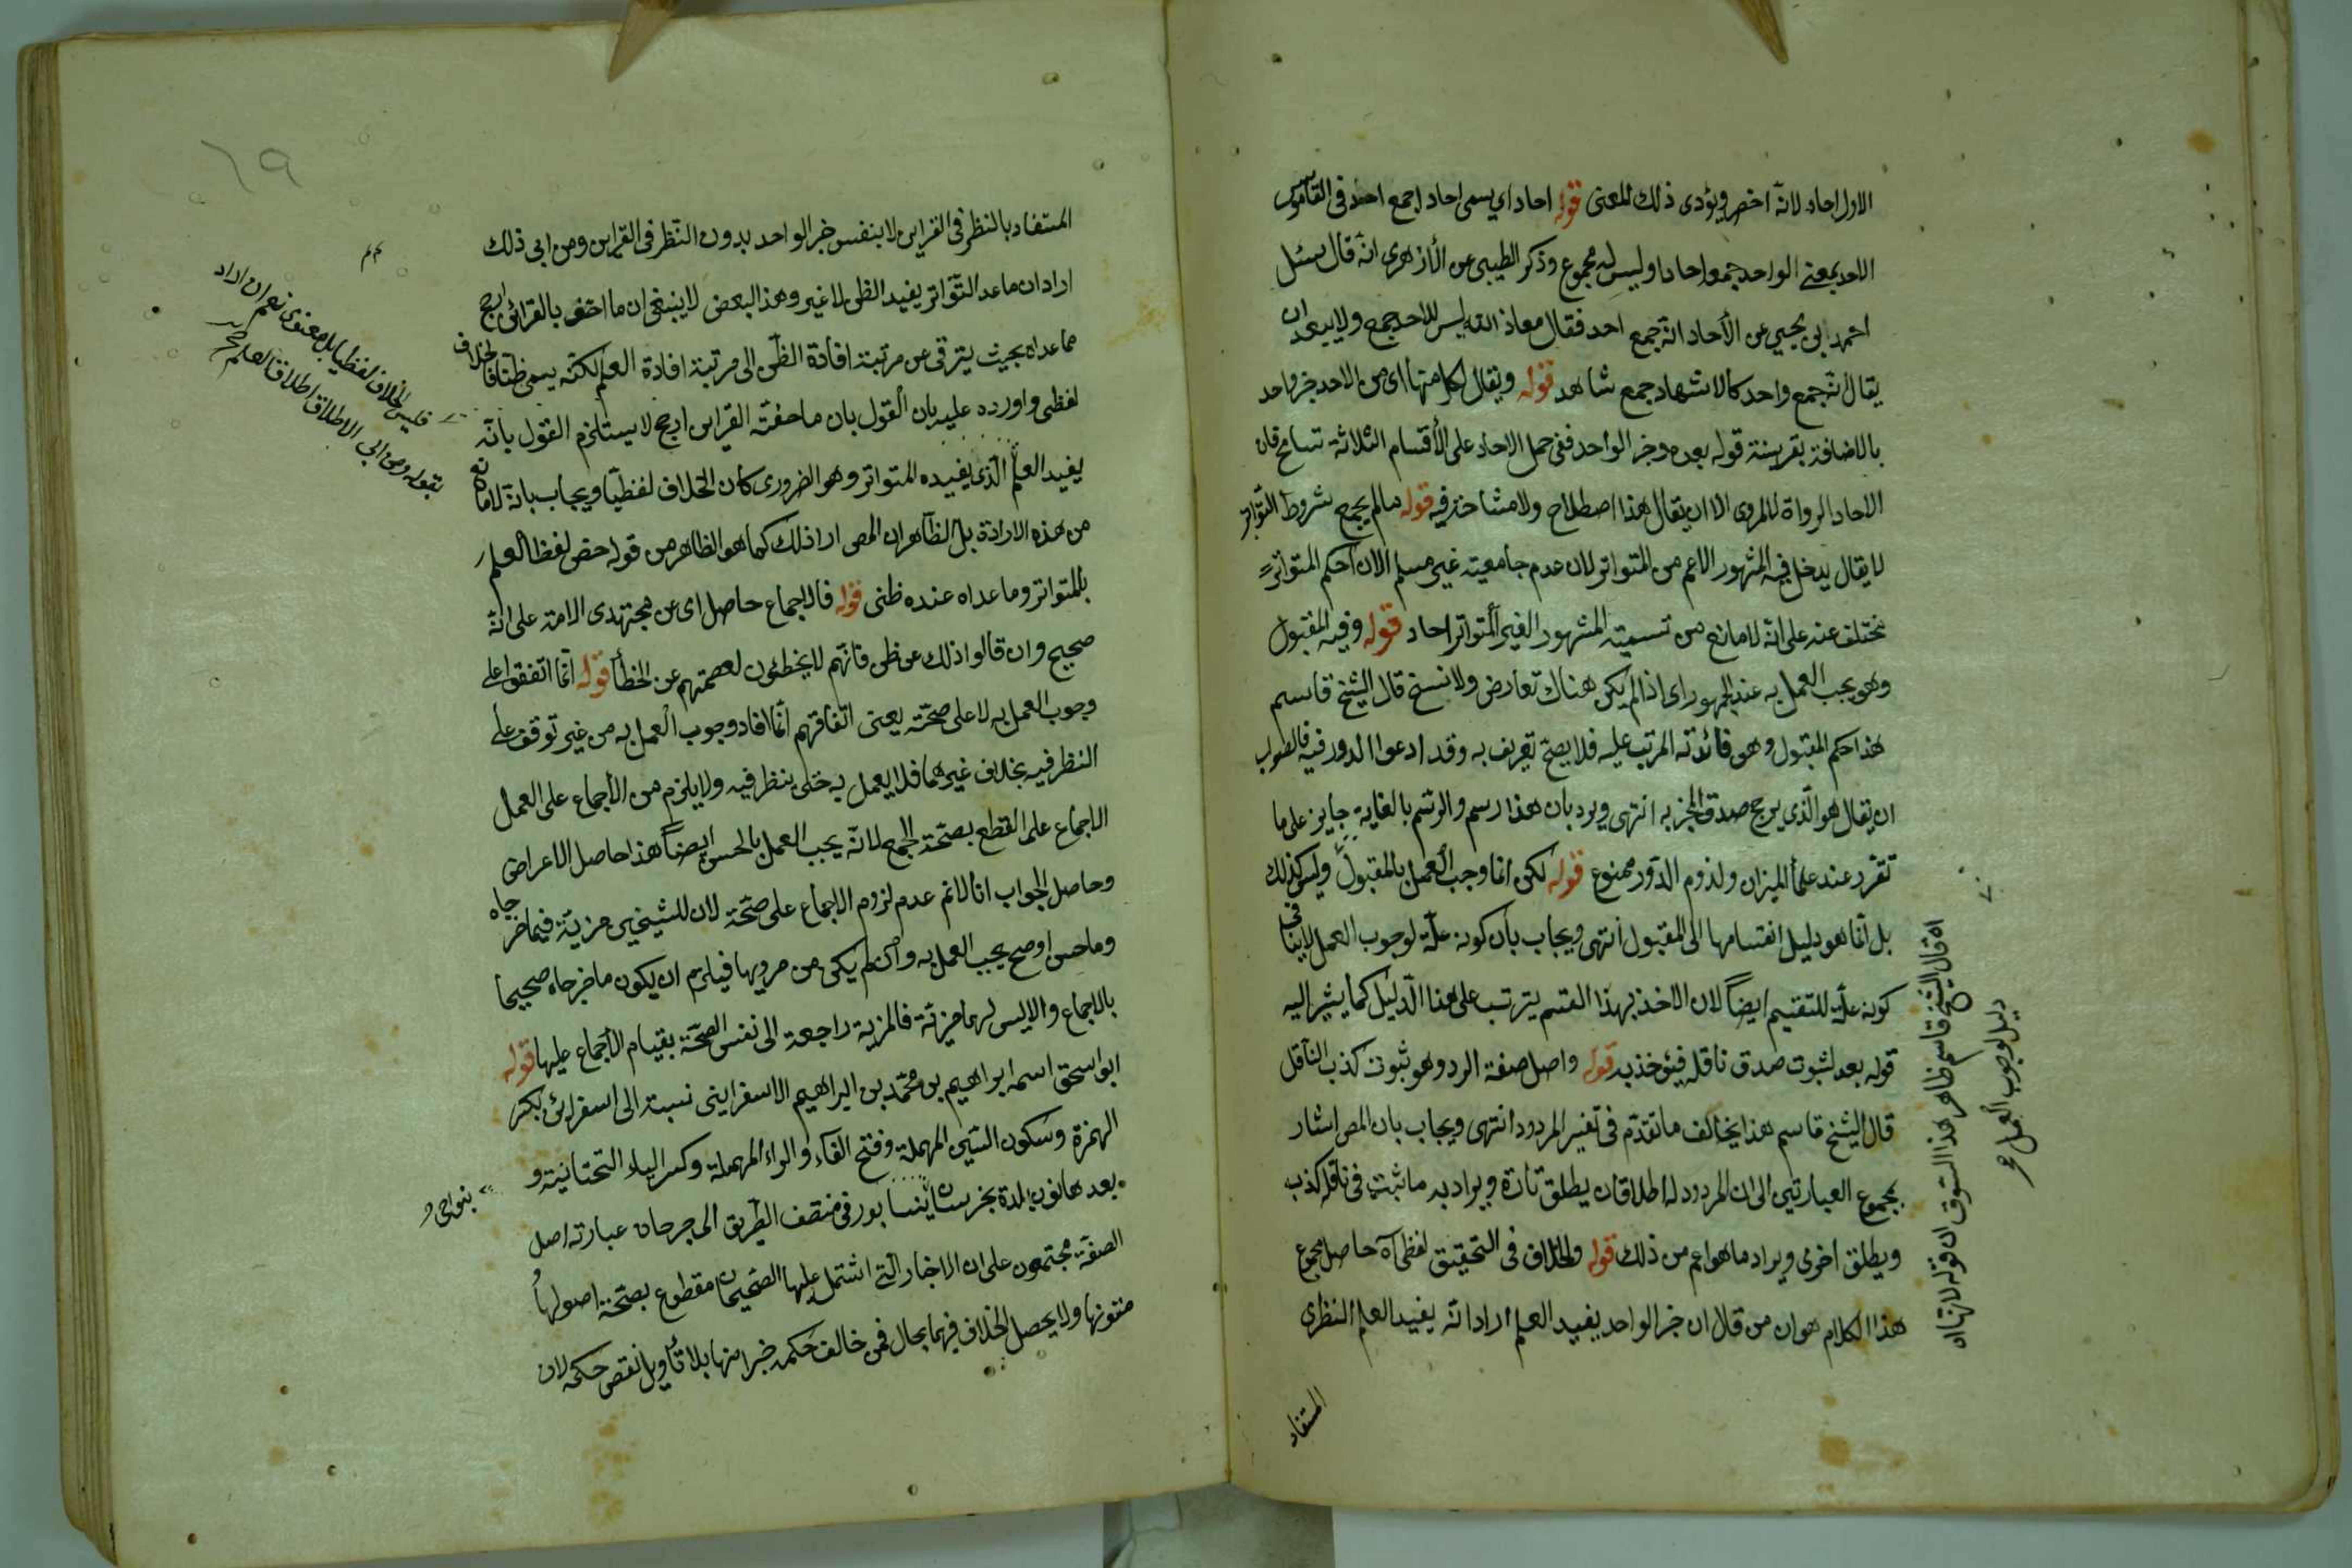 الاول احاد لانه اخصر ويؤدى ذلك المعنى قوله احاد اي يسمى احاد اجمع احد فى القاموس
الاحد بمعنى الواحد جمعه احاد او ليس له مجموع وذكر الطيبى عن الأزهرى انه قال سئل
احمد بن يحيى عن الأحاد انه جمع احد فقال معاذ الله ليس للاحد جمع ولا يبعد ان
يقال انه جمع واحد كالاشهاد جمع شاهد قوله ويقال لكل منها اى من الاحد خبر واحد
بالاضافة بقرينة قوله بعده وخبر الواحد ففى حمل الاحاد على الأقسام الثلاثة تسامح فان
الاحاد الرواة لا المروى الا ان يقال هذا اصطلاح ولا مشاحة فيه قوله ما لم يجمع شروط التواتر
لا يقال يدخل فيه المشهور الاعم من المتواتر لان عدم جامعيته غير مسلم الا ان احكم المتواتر
مختلف عنه على انه لا مانع من تسمية المشهور الغير المتواتر احاد قوله وفيه المقبول
وهو يجب العمل به عند الجمهور اى اذا لم يكن هناك تعارض ولا نسخ قال الشيخ قاسم
هذا حكم المقبول وهو فائدته المرتب عليه فلا يصح تعريف به وقد ادعوا الدور فيه فالصواب
ان يقال هو الذى يرجح صدق المخبر به انتهى ويرد بان هذا رسم والرسم بالغاية جايز على ما
تقرر عند علماء الميزان ولزوم الدور ممنوع قوله لكن انما وجب العمل بالمقبول وليس كذلك
بل انما هو دليل انقسامها الى المقبول انتهى ويجاب بان كونه علة لوجوب العمل لا ينافى
كونه علة للتقسيم ايضاً لان الاخذ بهذا القسم يترتب على هذا الدليل كما يشير اليه
قوله بعد لثبوت صدق ناقله فيؤخذ به قوله واصل صفة الرد وهو ثبوت كذب الناقل
قال الشيخ قاسم هذا يخالف ما تقدم فى تفسير المردود انتهى ويجاب بان المص اشار
بمجموع العبارتين الى ان المردود له اطلاقان يطلق تارة ويراد به ما ثبت فى ناقله كذب
ويطلق اخرى ويراد ما هو اعم من ذلك قوله والخلاف فى التحقيق لفظى آه حاصل مجموع
هذا الكلام هو ان من قال ان خبر الواحد يفيد العلم اراد انه يفيد العلم النظرى
المستفاد
اه قال الشيخ قاسم ظاهر هذا السوق ان قوله لانها اه
دليل لوجوب العمل
المستفاد بالنظر فى القراين لا بنفس خبر الواحد بدون النظر فى القراين ومن ابى ذلك
اراد ان ما عدا التواتر يفيد الظن لا غير وهذا البعض لا ينبغى ان ما احتف بالقرائن ارجح
مما عداه بحيث يترقى عن مرتبة افادة الظن الى مرتبة افادة العلم لكنه يسمى ظنا فالخلاف
لفظى واورده عليه بان القول بان ما حفته القراين ارجح لا يستلزم القول بانه
يفيد العلم الذى يفيده المتواتر وهو الضرورى كان الخلاف لفظيا ويجاب بانه لا مانع
من هذه الارادة بل الظاهر ان المص اراد ذلك كما هو الظاهر من قوله خص لفظ العلم
بالمتواتر وما عداه عنده ظنى قوله فالاجماع حاصل اى عن مجتهدى الامة على انه
صحيح وان قالوا ذلك عن ظن فانهم لا يخطئون لعصمتهم عن الخطأ قوله انما اتفقوا على
وجوب العمل به لا على صحته يعنى اتفاقهم انما افاد وجوب العمل به من غير توقف على
النظر فيه بخلاف غيرهما فلا يعمل به حتى ينظر فيه ولا يلزم من الأجماع على العمل
الاجماع على القطع بصحة الجمع لانه يجب العمل بالحسن ايضاً هذا حاصل الاعراض
وحاصل الجواب انا لا نم عدم لزوم الاجماع على صحته لان للشيخين مزية فيما خرجاه
وما حسن او صح يجب العمل به وان لم يكن من مرويها فيلزم ان يكون ما خرجاه صحيحا
بالاجماع والا ليس لهما مزية فالمزية راجعة الى نفس الصحة بقيام الأجماع عليها قوله
ابو اسحق اسمه ابراهيم بن محمد بن ابراهيم الاسفراينى نسبة الى اسفراين بكسر
الهمزة وسكون السين المهملة وفتح الفاء والراء المهملة وكسر الياء التحتانية و
بعدها نون بلدة بخرسان نيسابور فى منتصف الطريق الى جرجان عبارته اصل
الصفة مجتمعون على ان الاخبار التى اشتمل عليها الصحيحان مقطوع بصحة اصولها
متونها ولا يحصل الخلاف فيهما بحال فمن خالف حكمه خبرا منها بلا تأويل نقص حكمه لان
فليس الخلاف لفظيا بل معنوى نعم ان اراد
بقوله ومن ابى الاطلاق اطلاق العلم
بنواحى